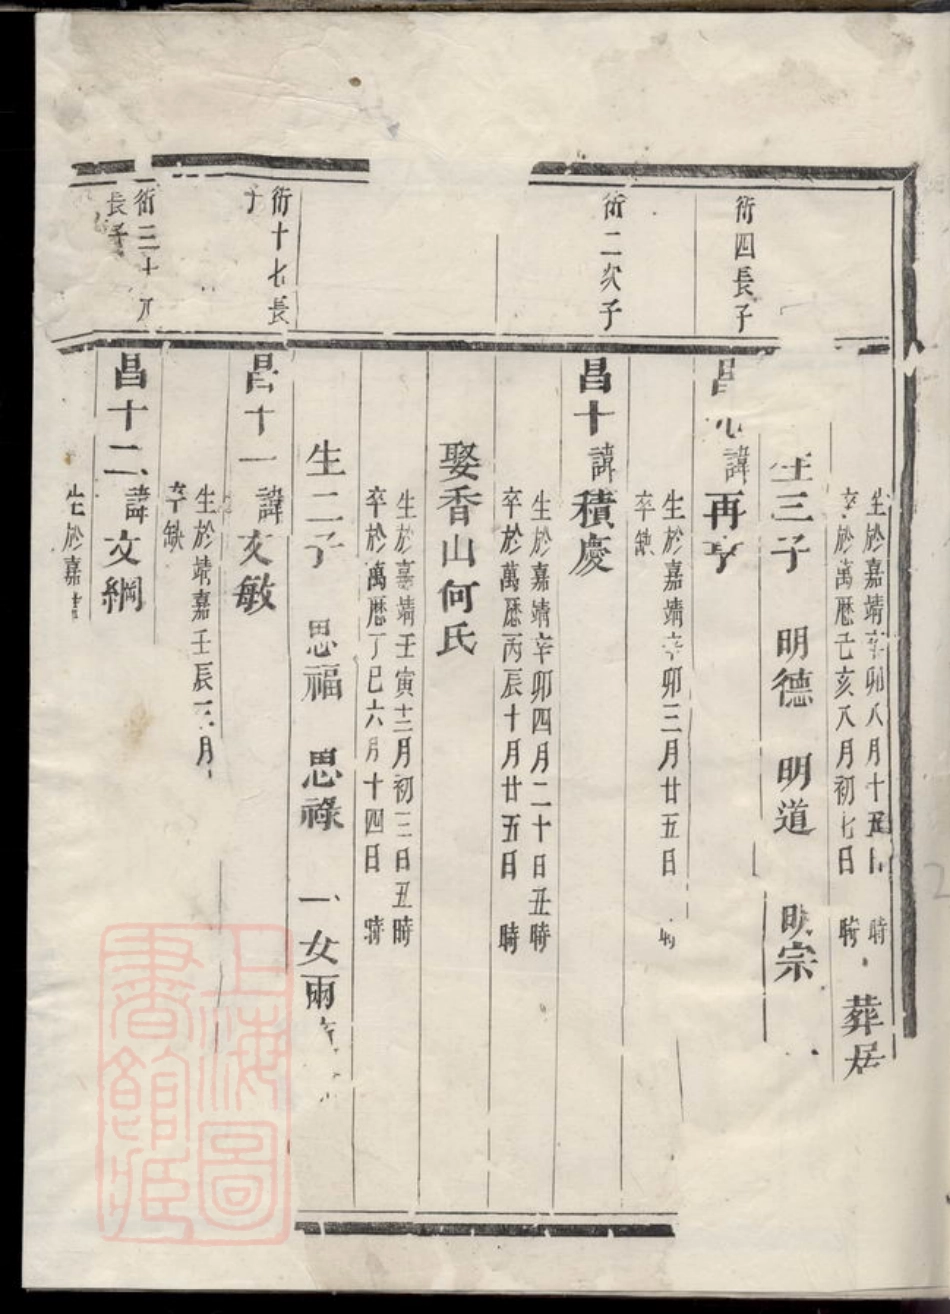 生於嘉靖辛卯八月十五日 時
卒於萬歷乙亥八月初七日 時 葬居
生三子 明德 明道 明宗
衍四長子
昌 諱再亨
生於嘉靖辛卯三月廿五日 時
卒缺
衍二次子
昌十諱積慶
生於嘉靖辛卯四月二十日丑時
卒於萬歷丙辰十月廿五日 時
娶香山何氏
生於嘉靖壬寅十二月初三日丑時
卒於萬歷丁巳六月十四日 時
生二子 思福 思祿 一女兩
衍十七長
子
昌十一諱文敏
生於靖嘉壬辰三月
卒缺
衍三十八
長子
昌十二諱文綱
生於嘉
上海圖
書館藏